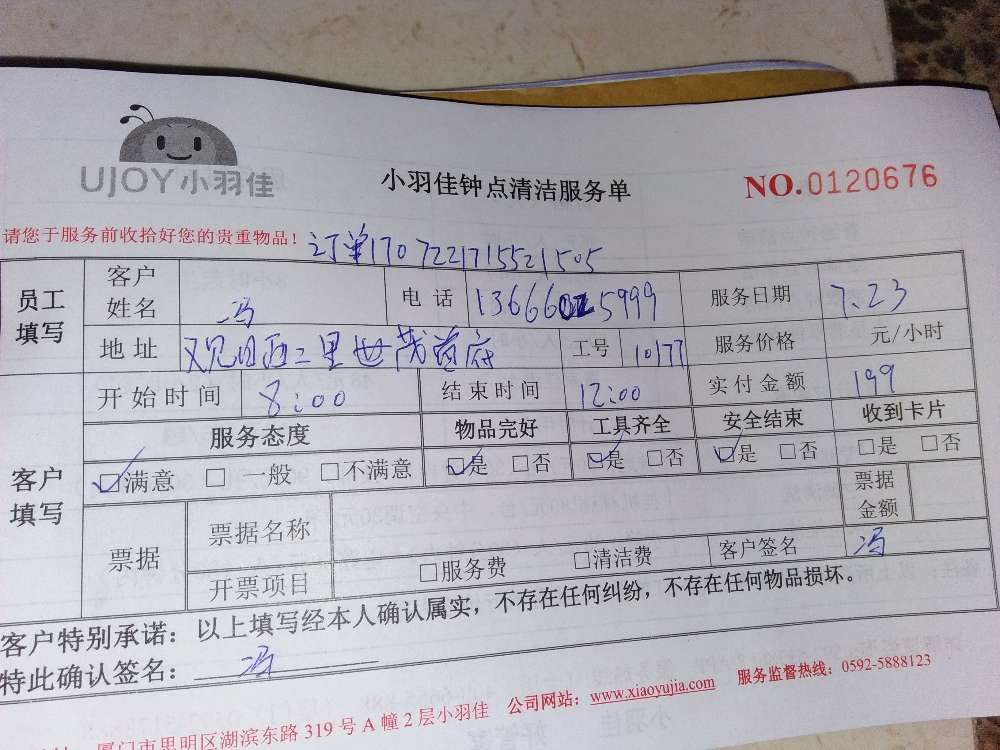 UJOY小羽佳
小羽佳钟点清洁服务单
NO.0120676
请您于服务前收拾好您的贵重物品！ 订单17072217155521505
员工填写 客户姓名 冯 电话 13666025999 服务日期 7.23
地址 观日西二里世茂 府 工号 10177 服务价格 元/小时
开始时间 8:00 结束时间 12:00 实付金额 199
客户填写 服务态度 物品完好 工具齐全 安全结束 收到卡片
☑满意 □一般 □不满意 ☑是 □否 ☑是 □否 ☑是 □否 □是 □否
票据 票据名称 票据金额
开票项目 □服务费 □清洁费 客户签名 冯
客户特别承诺：以上填写经本人确认属实，不存在任何纠纷，不存在任何物品损坏。
特此确认签名： 冯
厦门市思明区湖滨东路319号A幢2层小羽佳 公司网站：www.xiaoyujia.com 服务监督热线：0592-5888123